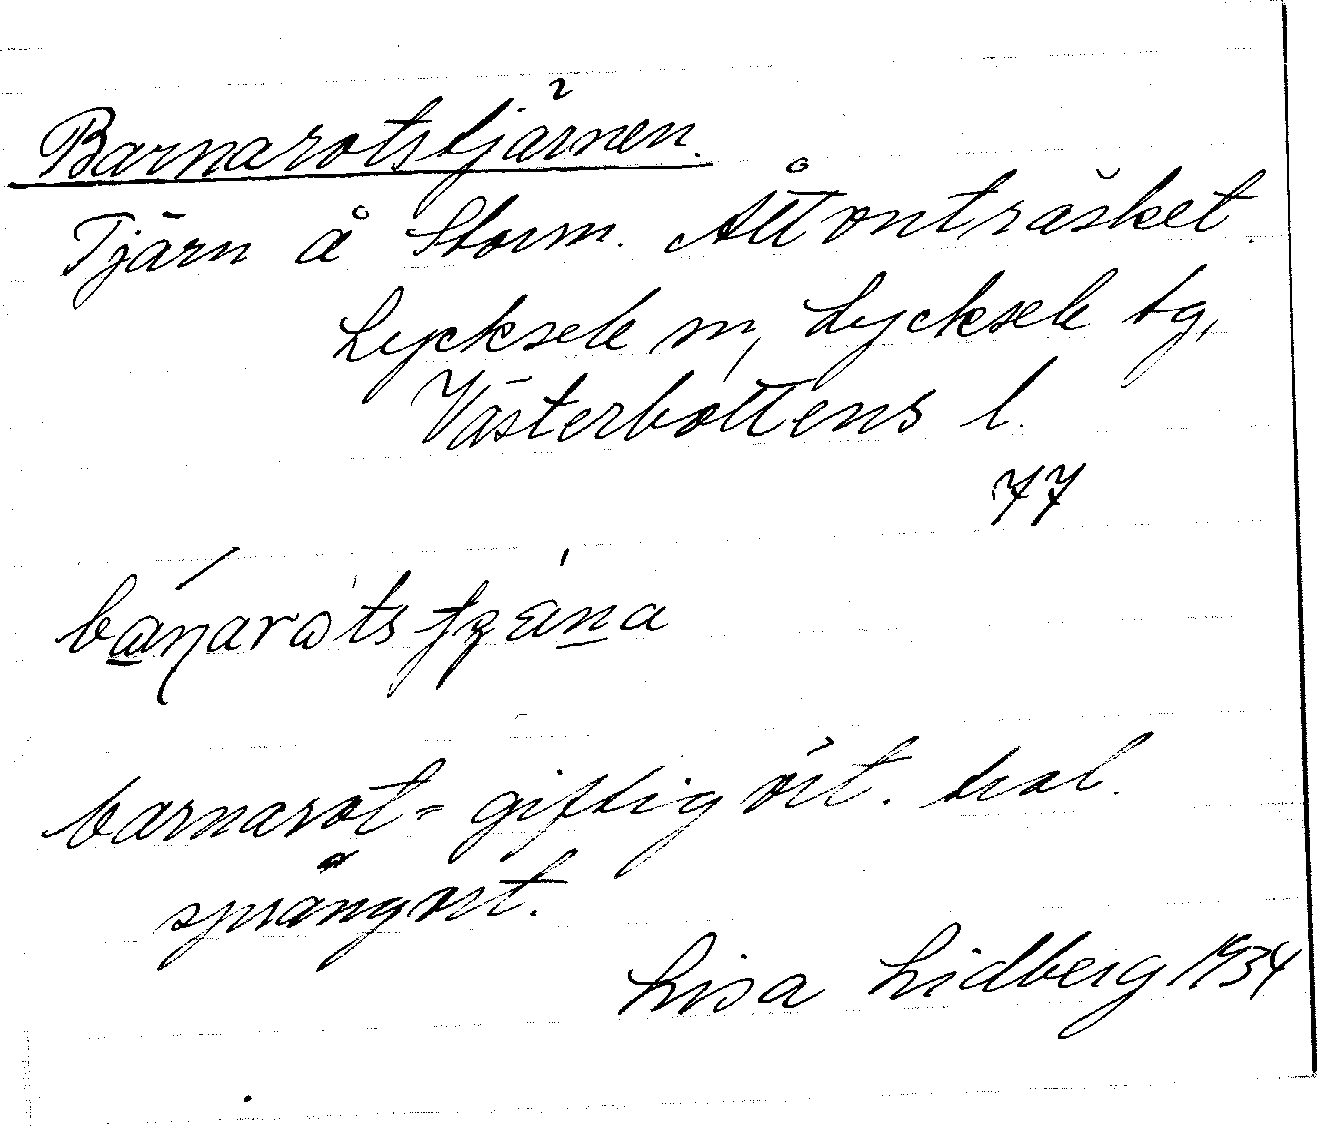 Barnarotstjärnen.
Tjärn å Storm. Åttonträsket.
Lycksele sn, Lycksele tg,
Västerbottens l.
77
barnarot = giftig ört. trol.
sprängört.
Lisa Lidberg 1934